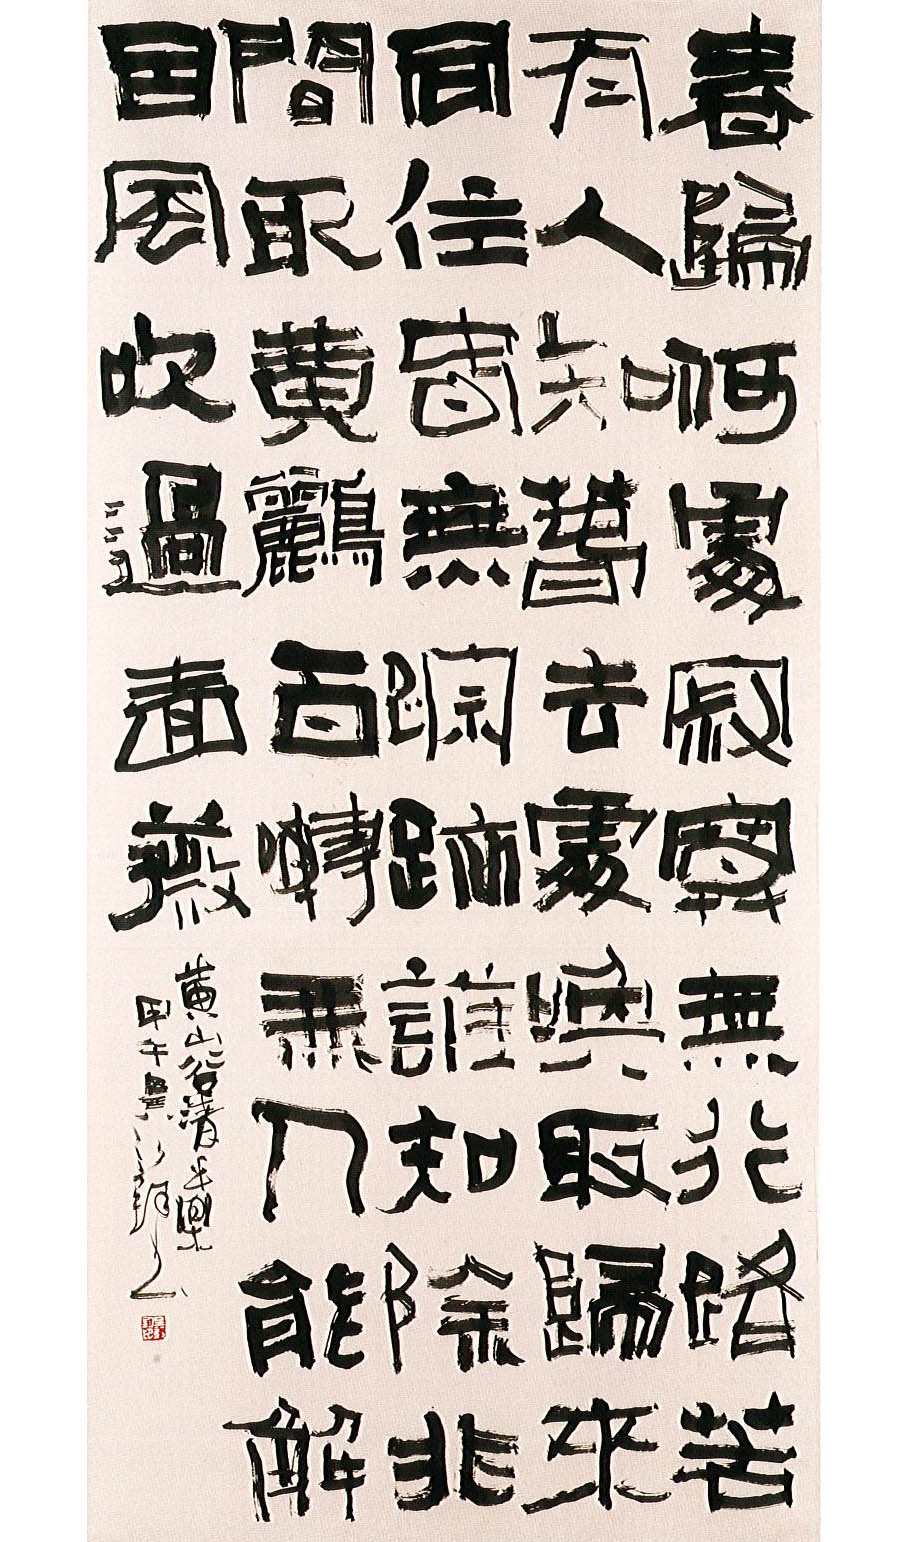 春歸何處寂寞無行路若
有人知春去處喚取歸來
同住春無踪跡誰知除非
問取黃鸝百囀無人能解
因風吹過薔薇
黃山谷清平樂
甲午